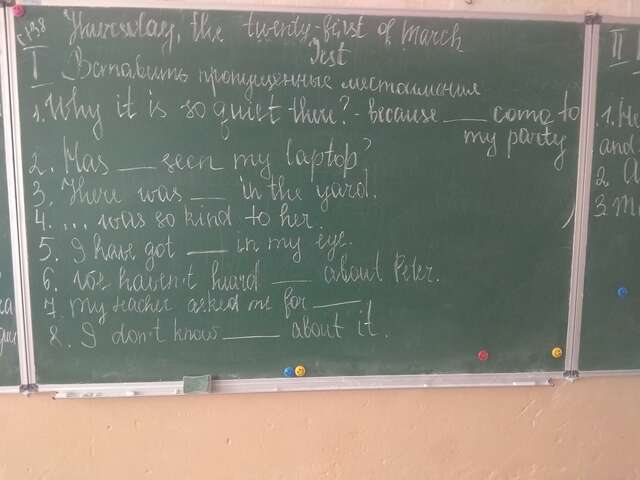 с 138
Thursday, the twenty-first of March
Test
I Вставить пропущенные местоимения
1. Why it is so quiet there? - because ___ come to
my party
2. Has ___ seen my laptop?
3. There was ___ in the yard.
4. ... was so kind to her.
5. I have got ___ in my eye.
6. We haven't heard ___ about Peter.
7. My teacher asked me for ___.
8. I don't know ___ about it.
II
1. He
and
2
3. M